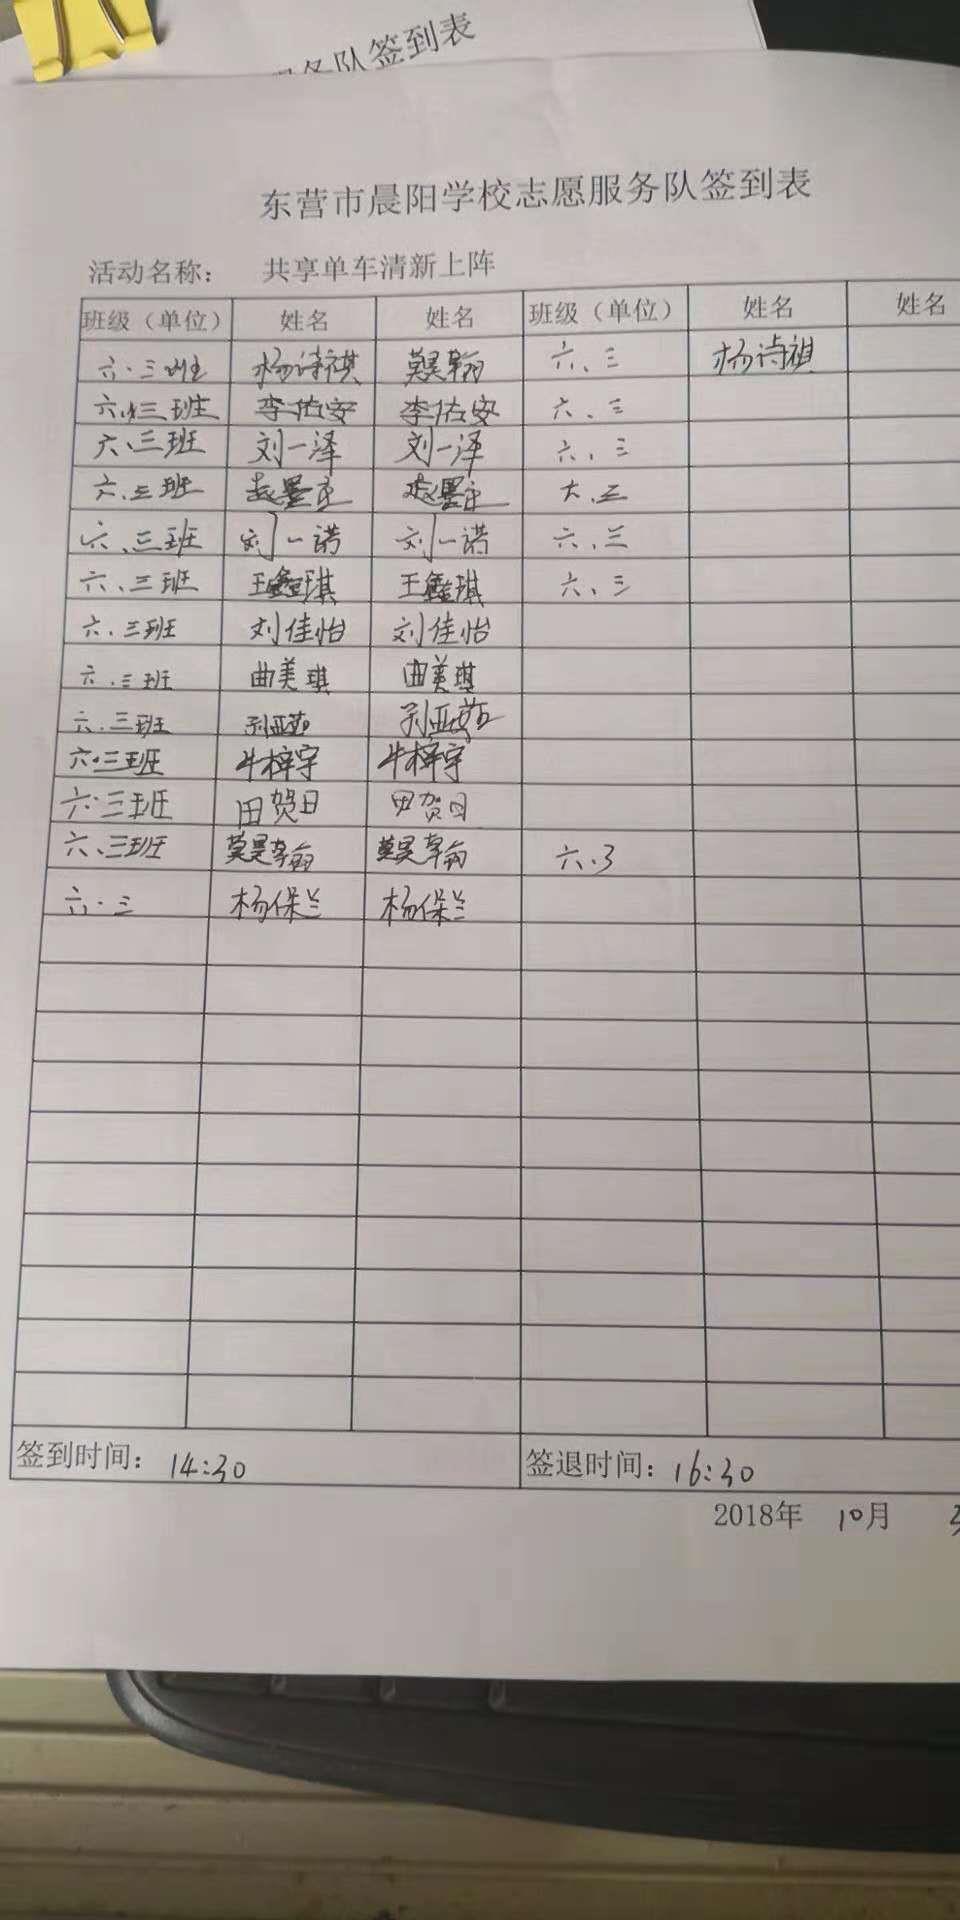 服务队签到表
东营市晨阳学校志愿服务队签到表
活动名称: 共享单车清新上阵
班级（单位） 姓名 姓名 班级（单位） 姓名 姓名
六.三班 杨诗祺 莫昊翰 六、三 杨诗祺
六、三班 李佑安 李佑安 六、三
六、三班 刘一泽 刘一泽 六、三
六.三班 六.三
六、三班 刘一诺 刘一诺 六、三
六、三班 王鑫琪 王鑫琪 六、三
六.三班 刘佳怡 刘佳怡
六.三班 曲美琪 曲美琪
六.三班
六.三班 牛梓宇 牛梓宇
六.三班 田贺日 田贺日
六、三班 莫昊翰 莫昊翰 六.3
六.三 杨保兰 杨保兰
签到时间: 14:30 签退时间: 16:30
2018年 10月